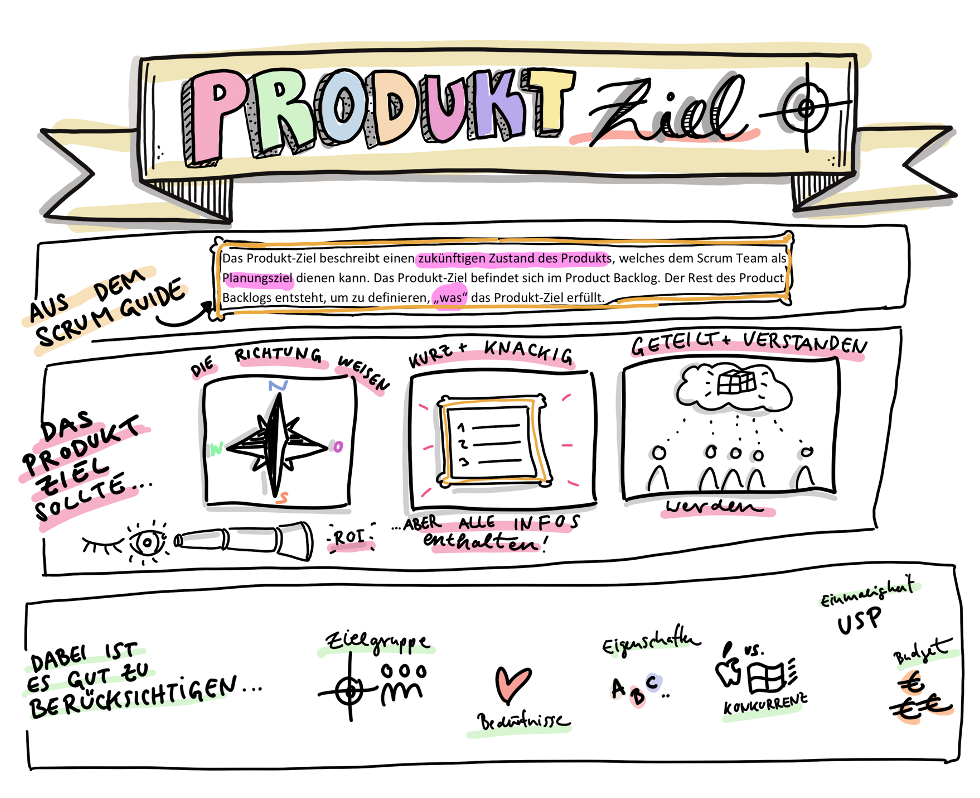 PRODUKT Ziel
Das Produkt-Ziel beschreibt einen zukünftigen Zustand des Produkts, welches dem Scrum Team als
Planungsziel dienen kann. Das Produkt-Ziel befindet sich im Product Backlog. Der Rest des Product
Backlogs entsteht, um zu definieren, „was“ das Produkt-Ziel erfüllt.
AUS DEM
SCRUM GUIDE
DAS
PRODUKT
ZIEL
SOLLTE...
DIE RICHTUNG WEISEN
N
W O
S
ROI
KURZ + KNACKIG
1
2
3
...ABER ALLE INFOS
enthalten!
GETEILT + VERSTANDEN
werden
DABEI IST
ES GUT ZU
BERÜCKSICHTIGEN...
Zielgruppe
Bedürfnisse
Eigenschaften
A B C ..
vs.
KONKURRENZ
Einmaligkeit
USP
Budget
€
€ €